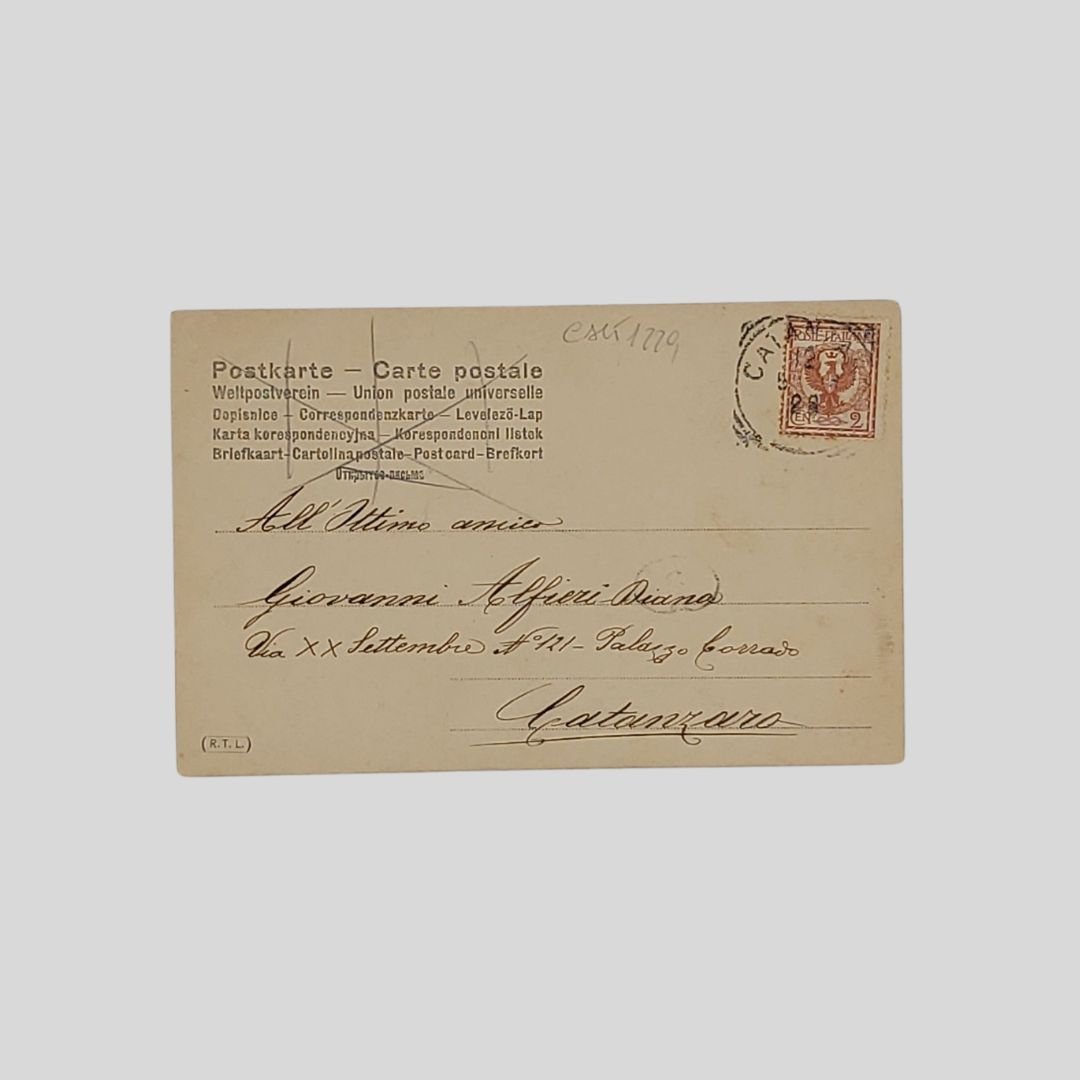 Postkarte — Carte postale
Weltpostverein — Union postale universelle
Dopisnice – Correspondenzkarte – Levelező-Lap
Karta korespondencyjna – Korespondencni listek
Briefkaart-Cartolina postale-Post card-Brefkort
Открытое письмо
POSTE ITALIANE
CEN. 2
All'Ottimo amico
Giovanni Alfieri Diana
Via XX Settembre N° 121 – Palazzo Corrado
Catanzaro
R. T. L.